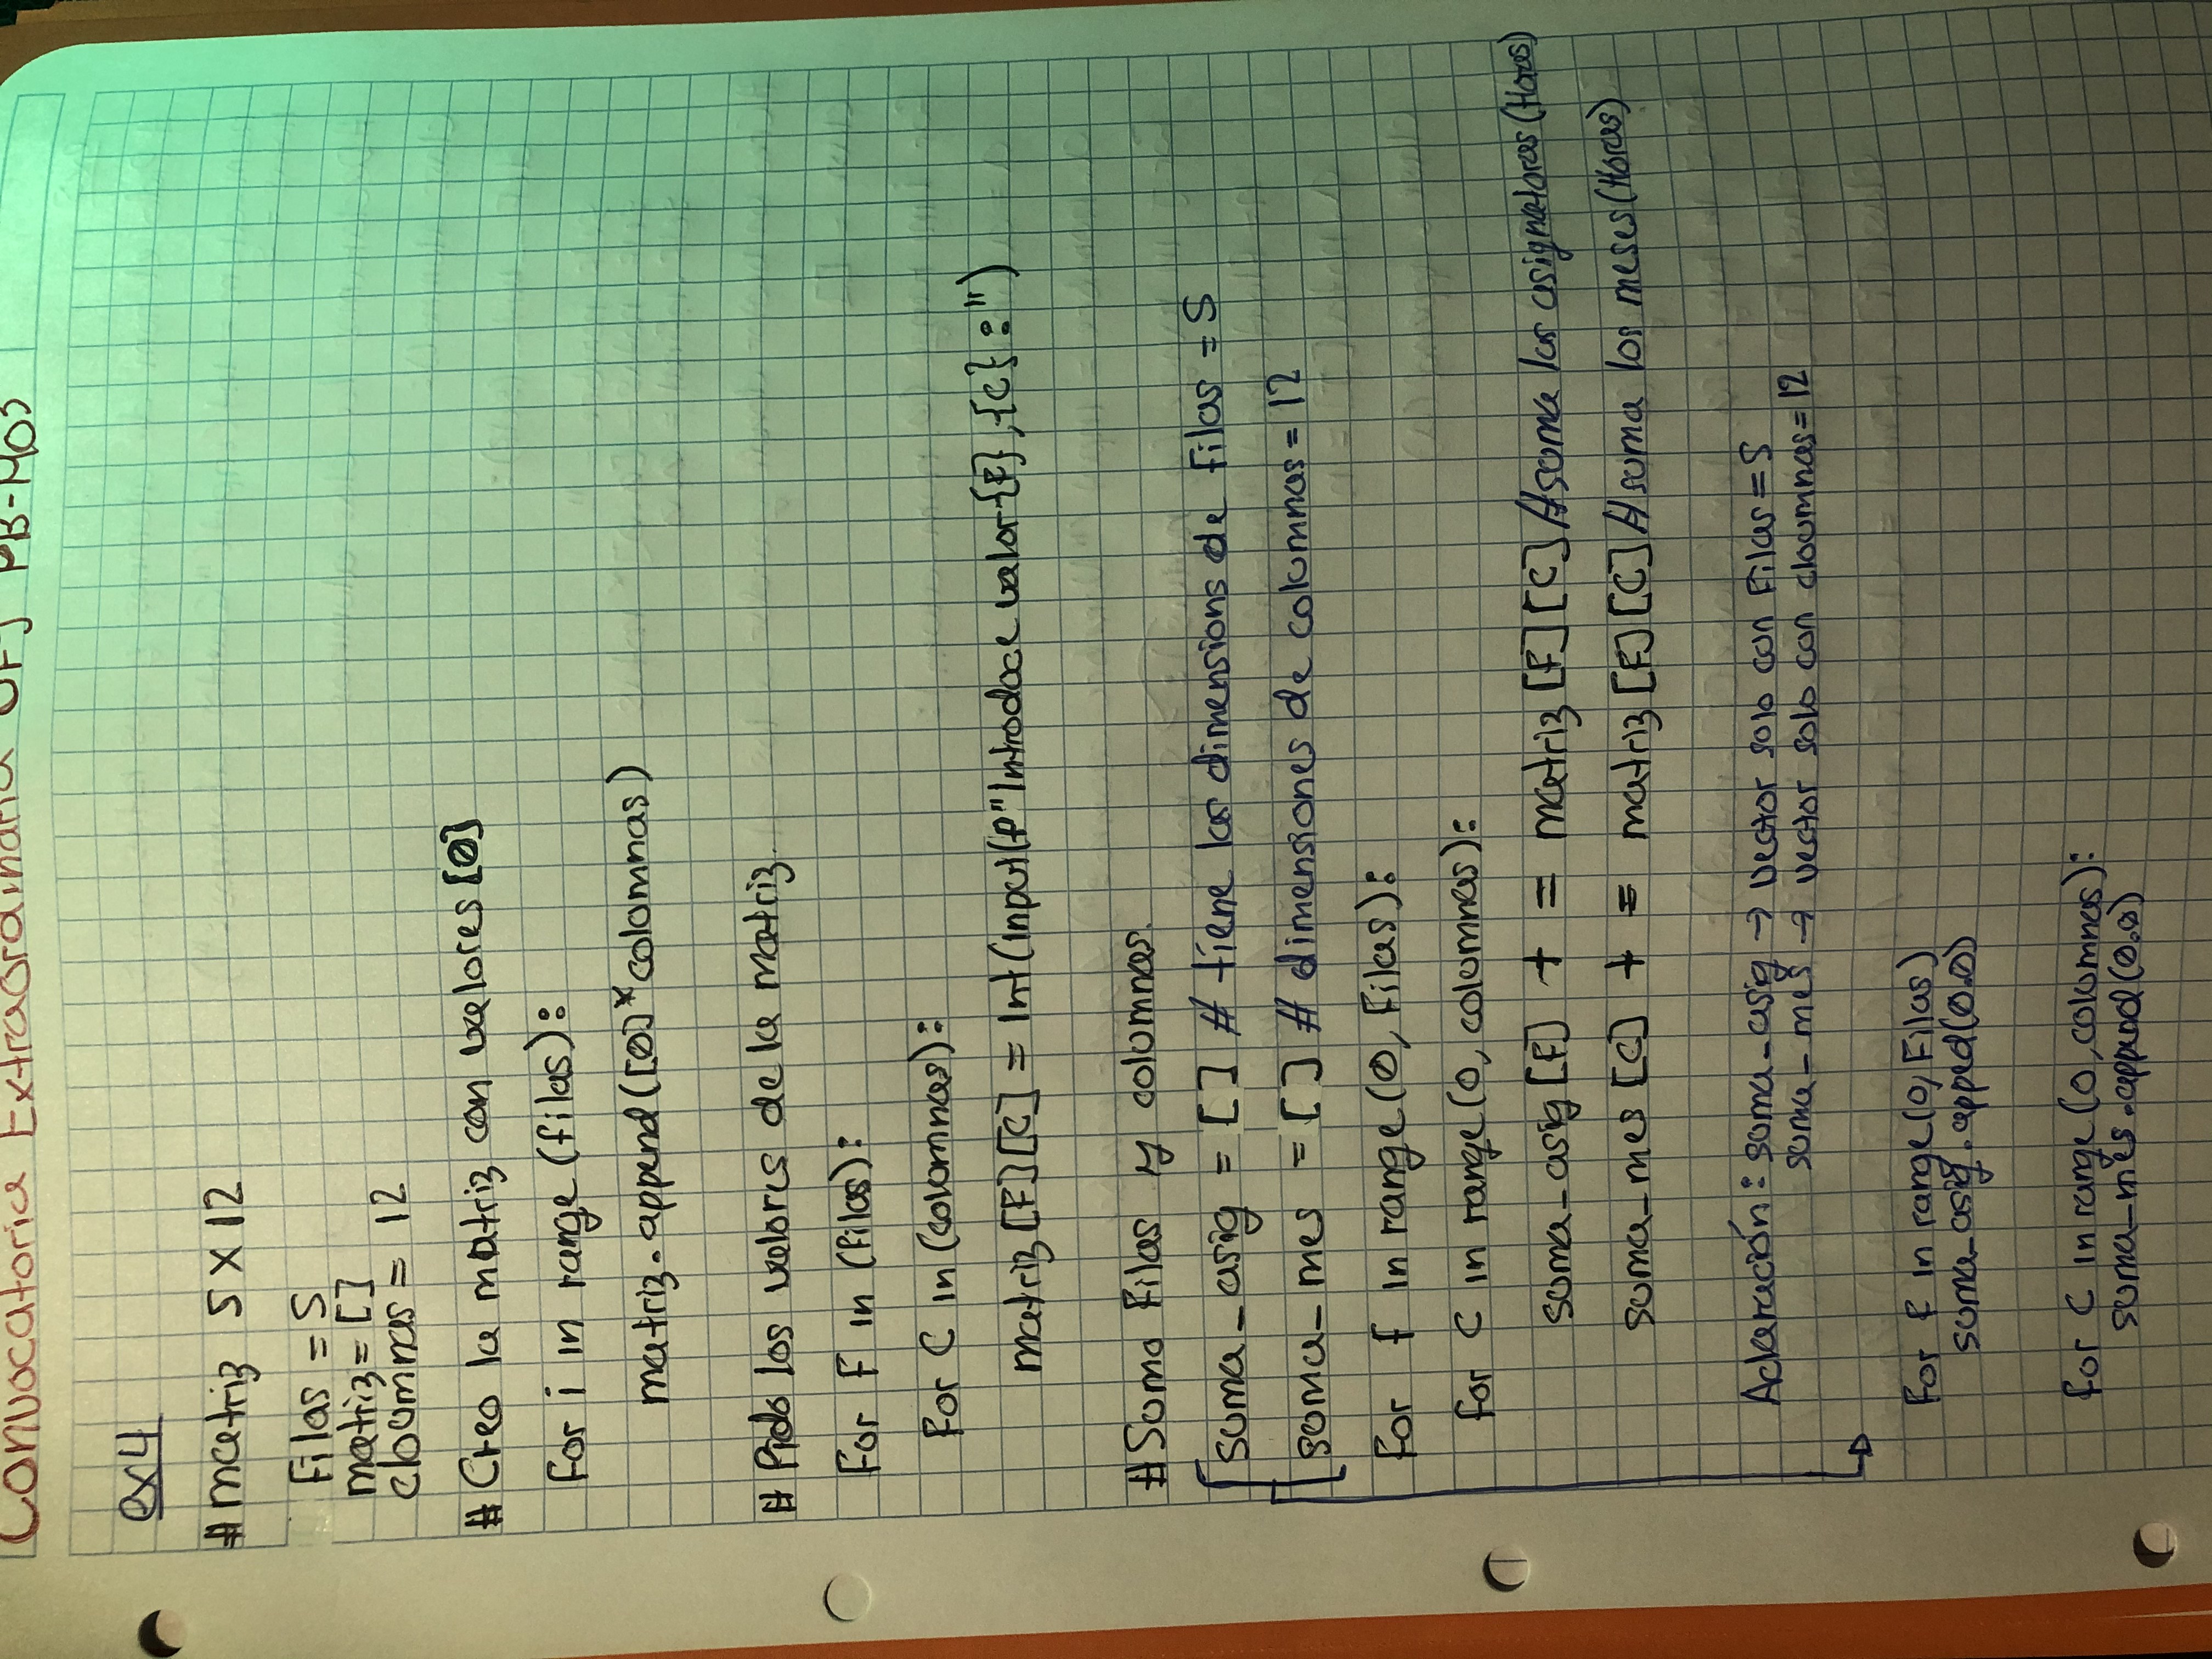 Convocatoria Extraordinaria UF3 PB-M03
ex4
# matriz 5 X 12
Filas = 5
matriz = []
cloumnas = 12
# Creo la matriz con valores [0]
For i in range (filas):
matriz.append([0]*columnas)
# Pido los valores de la matriz.
For F in (filas):
For C in (columnas):
matriz [F][C] = Int(input(f"Introduce valor {F}, {C} :")
# Suma Filas y columnas.
suma_asig = [] # tiene las dimensions de Filas = 5
suma_mes = [] # dimensiones de columnas = 12
For f in range (0, Filas):
for C in range (0, columnas):
suma_asig [F] + = matriz [F] [C] # suma las asignaturas (Horas)
suma_mes [C] + = matriz [F] [C] # suma los meses (Horas)
Aclaración: suma_asig → vector solo con Filas = 5
suma_mes → vector solo con cloumnas = 12
For f in range (0, Filas)
suma_asig.apped(0.0)
for C in range (0, columnas):
suma_mes.append(0.0)